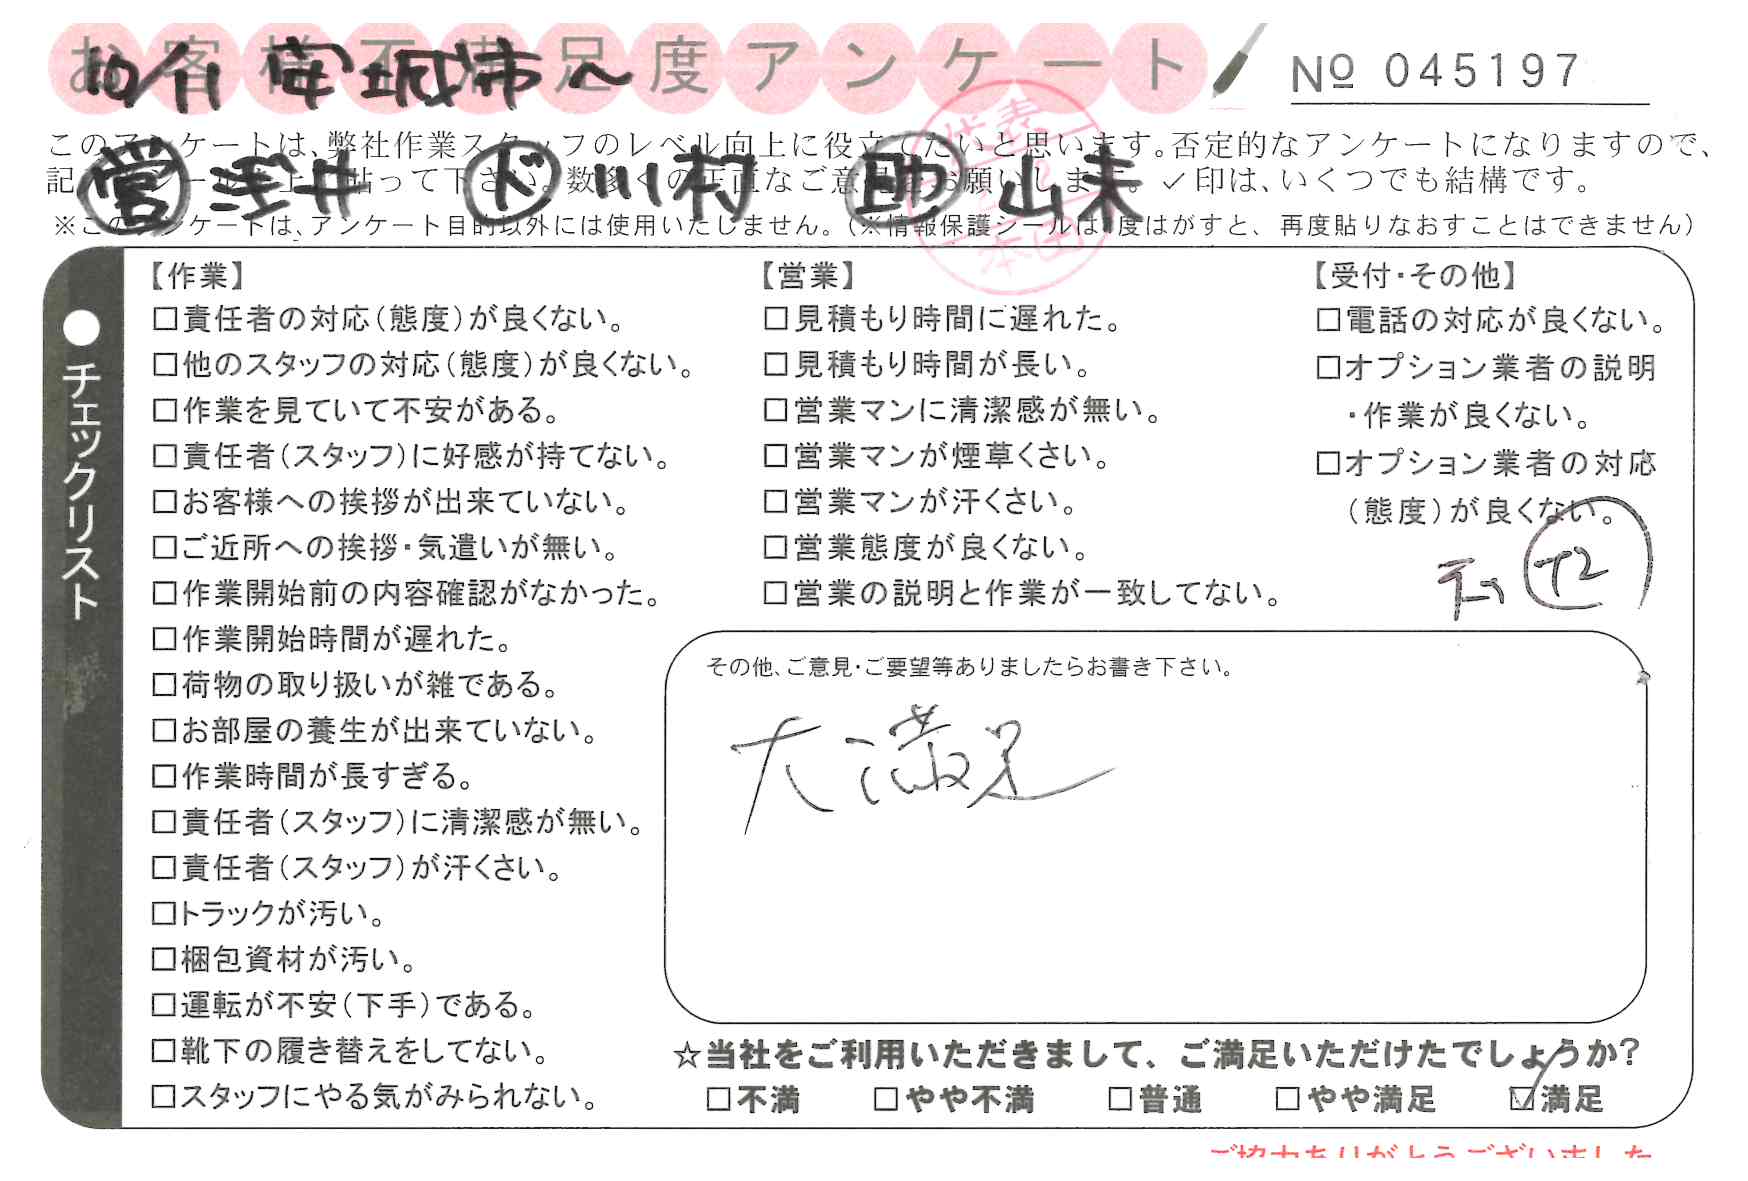 お客様不満足度アンケート
No 045197
10/11 安城市〜
このアンケートは、弊社作業スタッフのレベル向上に役立てたいと思います。否定的なアンケートになりますので、
記入シールを上に貼って下さい。数多くの正直なご意見をお願いします。✓印は、いくつでも結構です。
営 浅井 ド 川村 助 山未
※このアンケートは、アンケート目的以外には使用いたしません。(※情報保護シールは1度はがすと、再度貼りなおすことはできません)
代表
本田
●チェックリスト
【作業】
□責任者の対応(態度)が良くない。
□他のスタッフの対応(態度)が良くない。
□作業を見ていて不安がある。
□責任者(スタッフ)に好感が持てない。
□お客様への挨拶が出来ていない。
□ご近所への挨拶・気遣いが無い。
□作業開始前の内容確認がなかった。
□作業開始時間が遅れた。
□荷物の取り扱いが雑である。
□お部屋の養生が出来ていない。
□作業時間が長すぎる。
□責任者(スタッフ)に清潔感が無い。
□責任者(スタッフ)が汗くさい。
□トラックが汚い。
□梱包資材が汚い。
□運転が不安(下手)である。
□靴下の履き替えをしてない。
□スタッフにやる気がみられない。
【営業】
□見積もり時間に遅れた。
□見積もり時間が長い。
□営業マンに清潔感が無い。
□営業マンが煙草くさい。
□営業マンが汗くさい。
□営業態度が良くない。
□営業の説明と作業が一致してない。
【受付・その他】
□電話の対応が良くない。
□オプション業者の説明
・作業が良くない。
□オプション業者の対応
(態度)が良くない。
その他、ご意見・ご要望等ありましたらお書き下さい。
大満足
☆当社をご利用いただきまして、ご満足いただけたでしょうか?
□不満 □やや不満 □普通 □やや満足 ☑満足
ご協力ありがとうございました